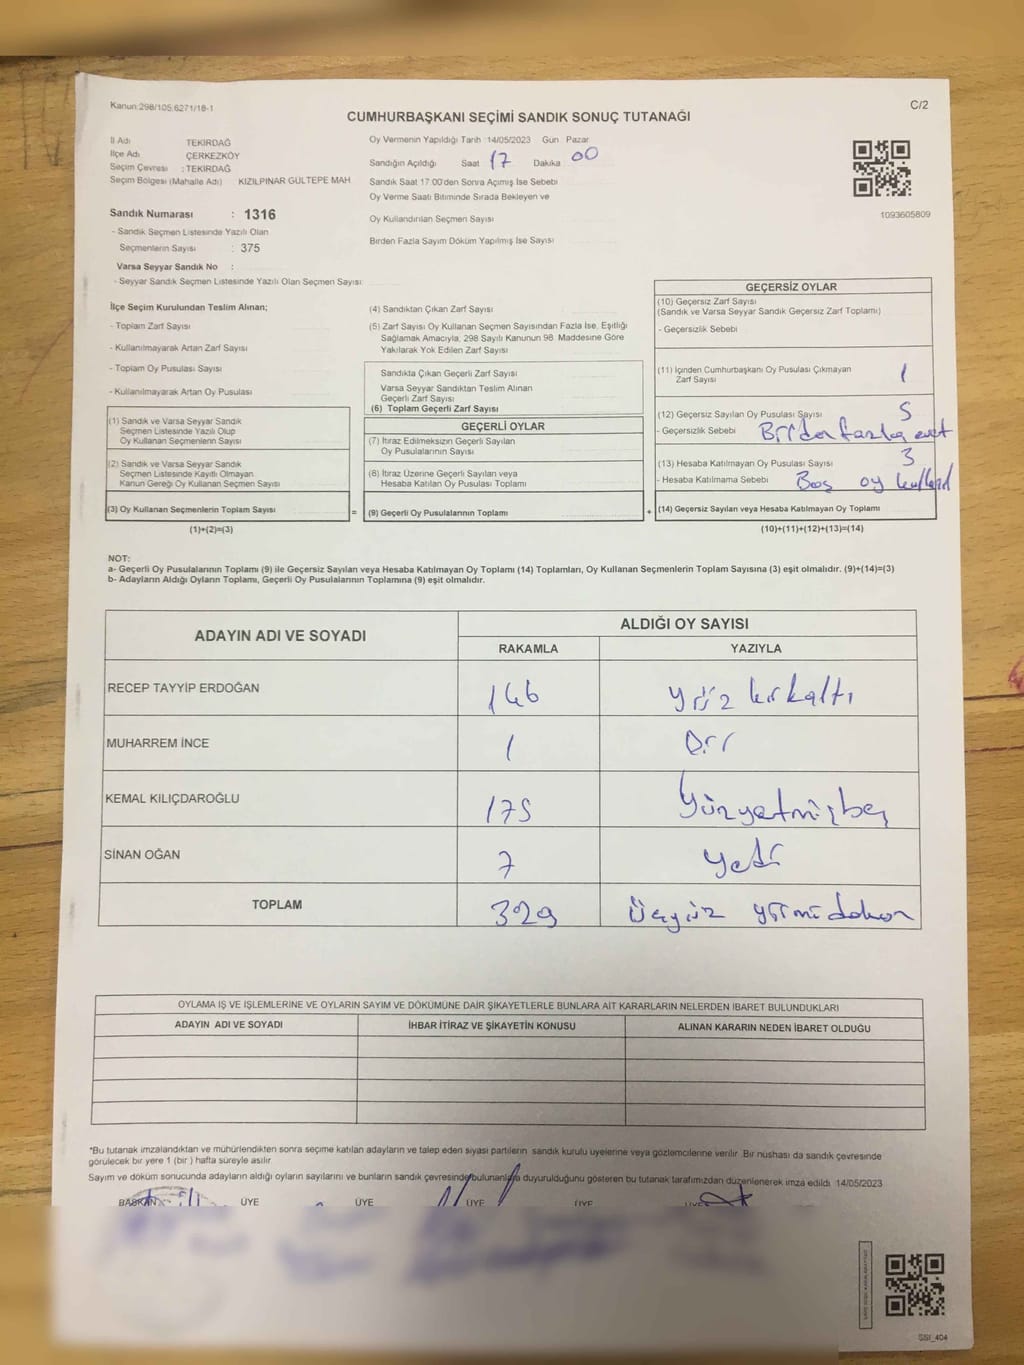 Kanun:298/105,6271/18-1
C/2
CUMHURBAŞKANI SEÇİMİ SANDIK SONUÇ TUTANAĞI
İl Adı TEKİRDAĞ
İlçe Adı ÇERKEZKÖY
Seçim Çevresi : TEKİRDAĞ
Seçim Bölgesi (Mahalle Adı) KIZILPINAR GÜLTEPE MAH
Oy Vermenin Yapıldığı Tarih : 14/05/2023 Gün : Pazar
Sandığın Açıldığı Saat 17 Dakika 00
Sandık Saat 17:00'den Sonra Açımış İse Sebebi
Oy Verme Saati Bitiminde Sırada Bekleyen ve
Oy Kullandırılan Seçmen Sayısı
Birden Fazla Sayım Döküm Yapılmış İse Sayısı
1093605809
Sandık Numarası : 1316
- Sandık Seçmen Listesinde Yazılı Olan
Seçmenlerin Sayısı : 375
Varsa Seyyar Sandık No :
- Seyyar Sandık Seçmen Listesinde Yazılı Olan Seçmen Sayısı
İlçe Seçim Kurulundan Teslim Alınan;
- Toplam Zarf Sayısı
- Kullanılmayarak Artan Zarf Sayısı
- Toplam Oy Pusulası Sayısı
- Kullanılmayarak Artan Oy Pusulası
(1) Sandık ve Varsa Seyyar Sandık
Seçmen Listesinde Yazılı Olup
Oy Kullanan Seçmenlerin Sayısı
(2) Sandık ve Varsa Seyyar Sandık
Seçmen Listesinde Kayıtlı Olmayan
Kanun Gereği Oy Kullanan Seçmen Sayısı
(3) Oy Kullanan Seçmenlerin Toplam Sayısı
(1)+(2)=(3)
=
(4) Sandıktan Çıkan Zarf Sayısı
(5) Zarf Sayısı Oy Kullanan Seçmen Sayısından Fazla İse, Eşitliği
Sağlamak Amacıyla, 298 Sayılı Kanunun 98. Maddesine Göre
Yakılarak Yok Edilen Zarf Sayısı
Sandıkta Çıkan Geçerli Zarf Sayısı
Varsa Seyyar Sandıktan Teslim Alınan
Geçerli Zarf Sayısı
(6) Toplam Geçerli Zarf Sayısı
GEÇERLİ OYLAR
(7) İtiraz Edilmeksizin Geçerli Sayılan
Oy Pusulalarının Sayısı
(8) İtiraz Üzerine Geçerli Sayılan veya
Hesaba Katılan Oy Pusulası Toplamı
(9) Geçerli Oy Pusulalarının Toplamı
+
GEÇERSİZ OYLAR
(10) Geçersiz Zarf Sayısı
(Sandık ve Varsa Seyyar Sandık Geçersiz Zarf Toplamı)
- Geçersizlik Sebebi
(11) İçinden Cumhurbaşkanı Oy Pusulası Çıkmayan
Zarf Sayısı 1
(12) Geçersiz Sayılan Oy Pusulası Sayısı 5
- Geçersizlik Sebebi Birden fazla evet
(13) Hesaba Katılmayan Oy Pusulası Sayısı 3
- Hesaba Katılmama Sebebi Boş oy
(14) Geçersiz Sayılan veya Hesaba Katılmayan Oy Toplamı
(10)+(11)+(12)+(13)=(14)
NOT:
a- Geçerli Oy Pusulalarının Toplamı (9) ile Geçersiz Sayılan veya Hesaba Katılmayan Oy Toplamı (14) Toplamları, Oy Kullanan Seçmenlerin Toplam Sayısına (3) eşit olmalıdır. (9)+(14)=(3)
b- Adayların Aldığı Oyların Toplamı, Geçerli Oy Pusulalarının Toplamına (9) eşit olmalıdır.
ADAYIN ADI VE SOYADI
ALDIĞI OY SAYISI
RAKAMLA YAZIYLA
RECEP TAYYİP ERDOĞAN 146 yüz kırkaltı
MUHARREM İNCE 1 Bir
KEMAL KILIÇDAROĞLU 175 Yüzyetmişbeş
SİNAN OĞAN 7 yedi
TOPLAM 329 Üçyüz yirmi dokuz
OYLAMA İŞ VE İŞLEMLERİNE VE OYLARIN SAYIM VE DÖKÜMÜNE DAİR ŞİKAYETLERLE BUNLARA AİT KARARLARIN NELERDEN İBARET BULUNDUKLARI
ADAYIN ADI VE SOYADI İHBAR İTİRAZ VE ŞİKAYETİN KONUSU ALINAN KARARIN NEDEN İBARET OLDUĞU
*Bu tutanak imzalandıktan ve mühürlendikten sonra seçime katılan adayların ve talep eden siyasi partilerin sandık kurulu üyelerine veya gözlemcilerine verilir. Bir nüshası da sandık çevresinde
görülecek bir yere 1 (bir ) hafta süreyle asılır.
Sayım ve döküm sonucunda adayların aldığı oyların sayılarını ve bunların sandık çevresinde bulunanlara duyurulduğunu gösteren bu tutanak tarafımızdan düzenlenerek imza edildi. 14/05/2023
BAŞKAN ÜYE ÜYE ÜYE ÜYE ÜYE
SSI_404